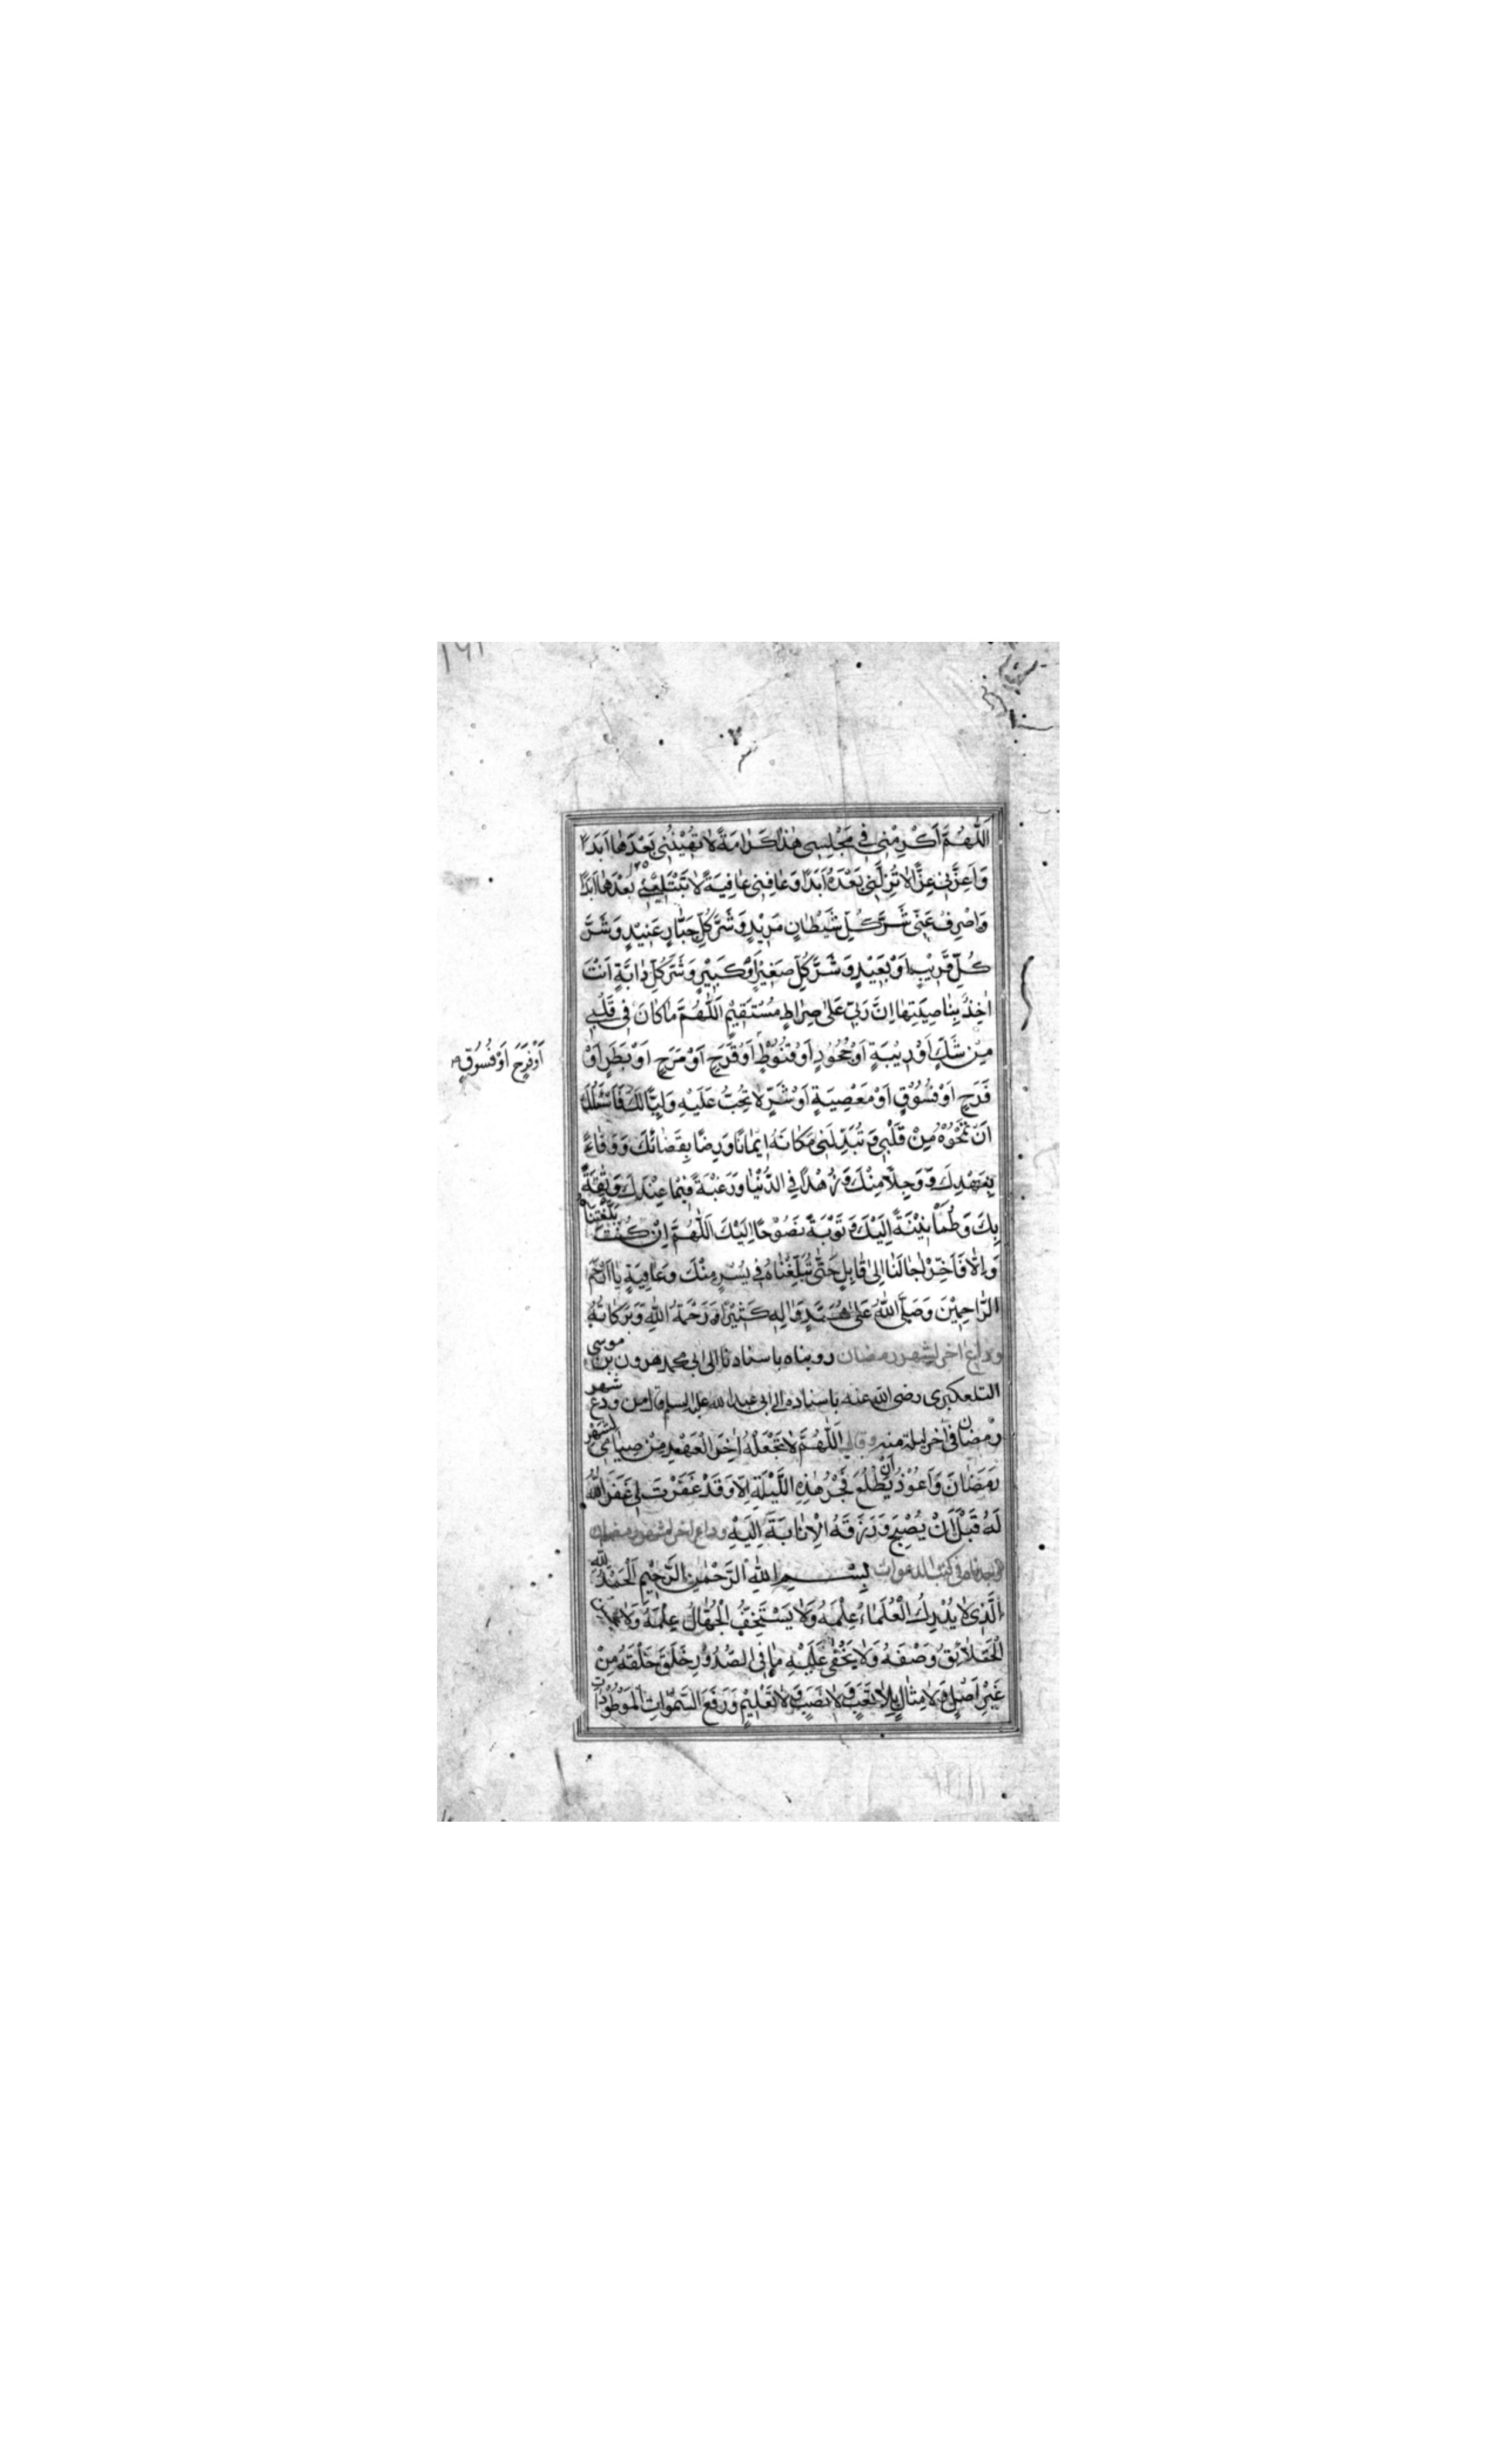 اَللّٰهُمَّ اَكْرِمْنِي فِي مَجْلِسِي هٰذَا كَرَامَةً لَا تُهِيْنُنِي بَعْدَهَا اَبَدًا
وَاَعِزَّنِي عِزًّا لَا تُذِلَّنِي بَعْدَهُ اَبَدًا وَعَافِنِي عَافِيَةً لَا تَبْتَلِيَنِي بَعْدَهَا اَبَدًا
وَاصْرِفْ عَنِّي شَرَّ كُلِّ شَيْطَانٍ مَرِيْدٍ وَشَرَّ كُلِّ جَبَّارٍ عَنِيْدٍ وَشَرَّ
كُلِّ قَرِيْبٍ اَوْ بَعِيْدٍ وَشَرَّ كُلِّ صَغِيْرٍ اَوْ كَبِيْرٍ وَشَرَّ كُلِّ دَابَّةٍ اَنْتَ
اٰخِذٌ بِنَاصِيَتِهَا اِنَّ رَبِّي عَلٰى صِرَاطٍ مُسْتَقِيْمٍ اَللّٰهُمَّ مَا كَانَ فِي قَلْبِي
مِنْ شَكٍّ اَوْ رِيْبَةٍ اَوْ جُحُوْدٍ اَوْ قُنُوْطٍ اَوْ فَرَحٍ اَوْ مَرَحٍ اَوْ بَطَرٍ اَوْ
اَوْ فَرَحٍ اَوْ فُسُوْقٍ
فَرَحٍ اَوْ فُسُوْقٍ اَوْ مَعْصِيَةٍ اَوْ شَرٍّ لَا تُحِبُّ عَلَيْهِ وَلِيًّا لَكَ فَاَسْئَلُكَ
اَنْ تَمْحُوَهُ مِنْ قَلْبِي وَتُبَدِّلَنِي مَكَانَهُ اِيْمَانًا وَرِضًا بِقَضَائِكَ وَوَفَاءً
بِعَهْدِكَ وَوَجِلًا مِنْكَ وَزُهْدًا فِي الدُّنْيَا وَرَغْبَةً فِيْمَا عِنْدَكَ وَثِقَةً
بِكَ وَطُمَأْنِيْنَةً اِلَيْكَ وَتَوْبَةً نَصُوْحًا اِلَيْكَ اَللّٰهُمَّ اِنْ كُنْتَ بَلَّغْتَنَاهُ
وَاِلَّا فَاَخِّرْ اٰجَالَنَا اِلٰى قَابِلٍ حَتّٰى تُبَلِّغَنَاهُ فِي يُسْرٍ مِنْكَ وَعَافِيَةٍ يَا اَرْحَمَ
الرَّاحِمِيْنَ وَصَلَّى اللّٰهُ عَلٰى مُحَمَّدٍ وَاٰلِهِ كَثِيْرًا وَرَحْمَةُ اللّٰهِ وَبَرَكَاتُهُ
وداع اخر لشهر رمضان رويناه باسنادنا الى ابى محمد هرون بن موسى
التلعكبرى رضى الله عنه باسناده الى ابى عبد الله عليه السلم قال من ودع شهر
رمضان فى آخر ليلة منه وقال اَللّٰهُمَّ لَا تَجْعَلْهُ اٰخِرَ الْعَهْدِ مِنْ صِيَامِي لِشَهْرِ
رَمَضَانَ وَاَعُوْذُ اَنْ يَطْلُعَ فَجْرُ هٰذِهِ اللَّيْلَةِ اِلَّا وَقَدْ غَفَرْتَ لِي غَفَرَ اللّٰهُ
لَهُ قَبْلَ اَنْ يُصْبِحَ وَرَزَقَهُ الْاِنَابَةَ اِلَيْهِ وداع اخر لشهر رمضان
وجدناه فى كتب الدعوات بِسْمِ اللّٰهِ الرَّحْمٰنِ الرَّحِيْمِ اَلْحَمْدُ لِلّٰهِ
الَّذِي لَا يُدْرِكُ الْعُلَمَاءُ عِلْمَهُ وَلَا يَسْتَخِفُّ الْجُهَّالُ حِلْمَهُ وَلَا
الْخَلَائِقُ وَصْفَهُ وَلَا يَخْفٰى عَلَيْهِ مَا فِي الصُّدُوْرِ خَلَقَ خَلْقَهُ مِنْ
غَيْرِ اَصْلٍ وَلَا مِثَالٍ بِلَا تَعَبٍ وَلَا نَصَبٍ وَلَا تَعْلِيْمٍ وَرَفَعَ السَّمٰوَاتِ الْمَوْطُوْدَاتِ